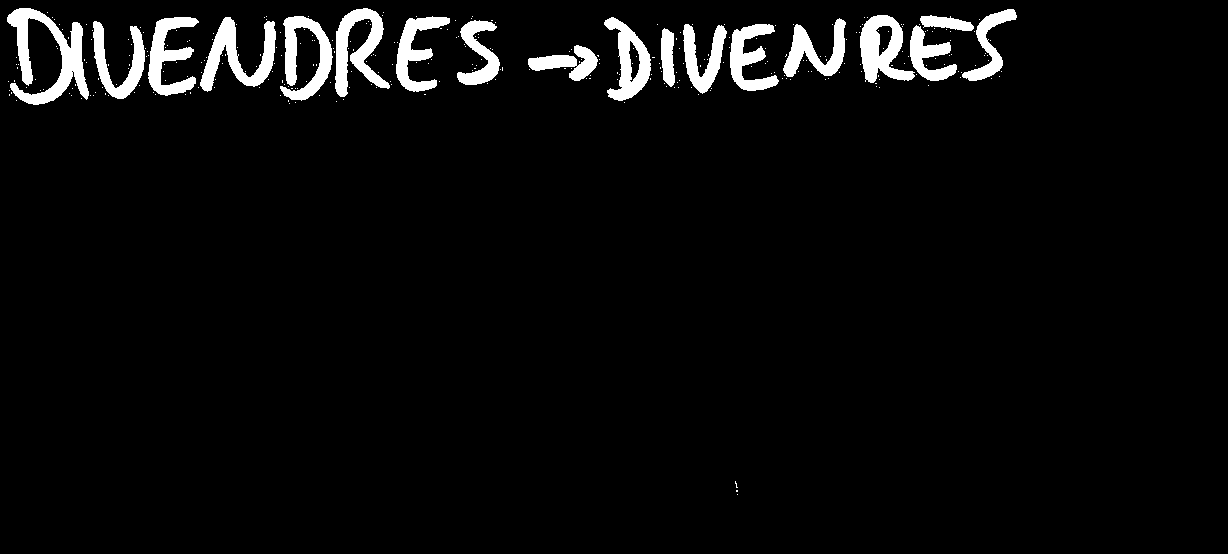 DIVENDRES → DIVENRES